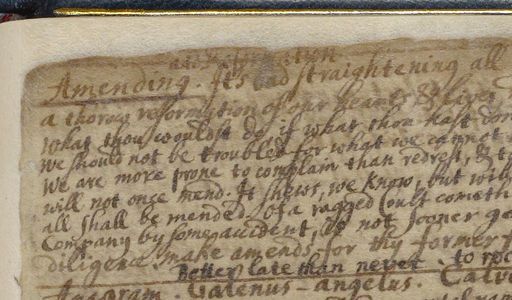 and reformation
Amending. It's bad straightening all
a thorow reformation of our hearts & lives
what thou wouldst do if what thou hast
we should not be troubled for what we cannot
we are more prone to complain than redress, &
will not once mend. It shews, we know, but will
all shall be mended. Of a ragged colt cometh
Company by some accident, is not sooner
diligence make amends for thy former
Better late than never. to
Anagram. Galenus - angelus.